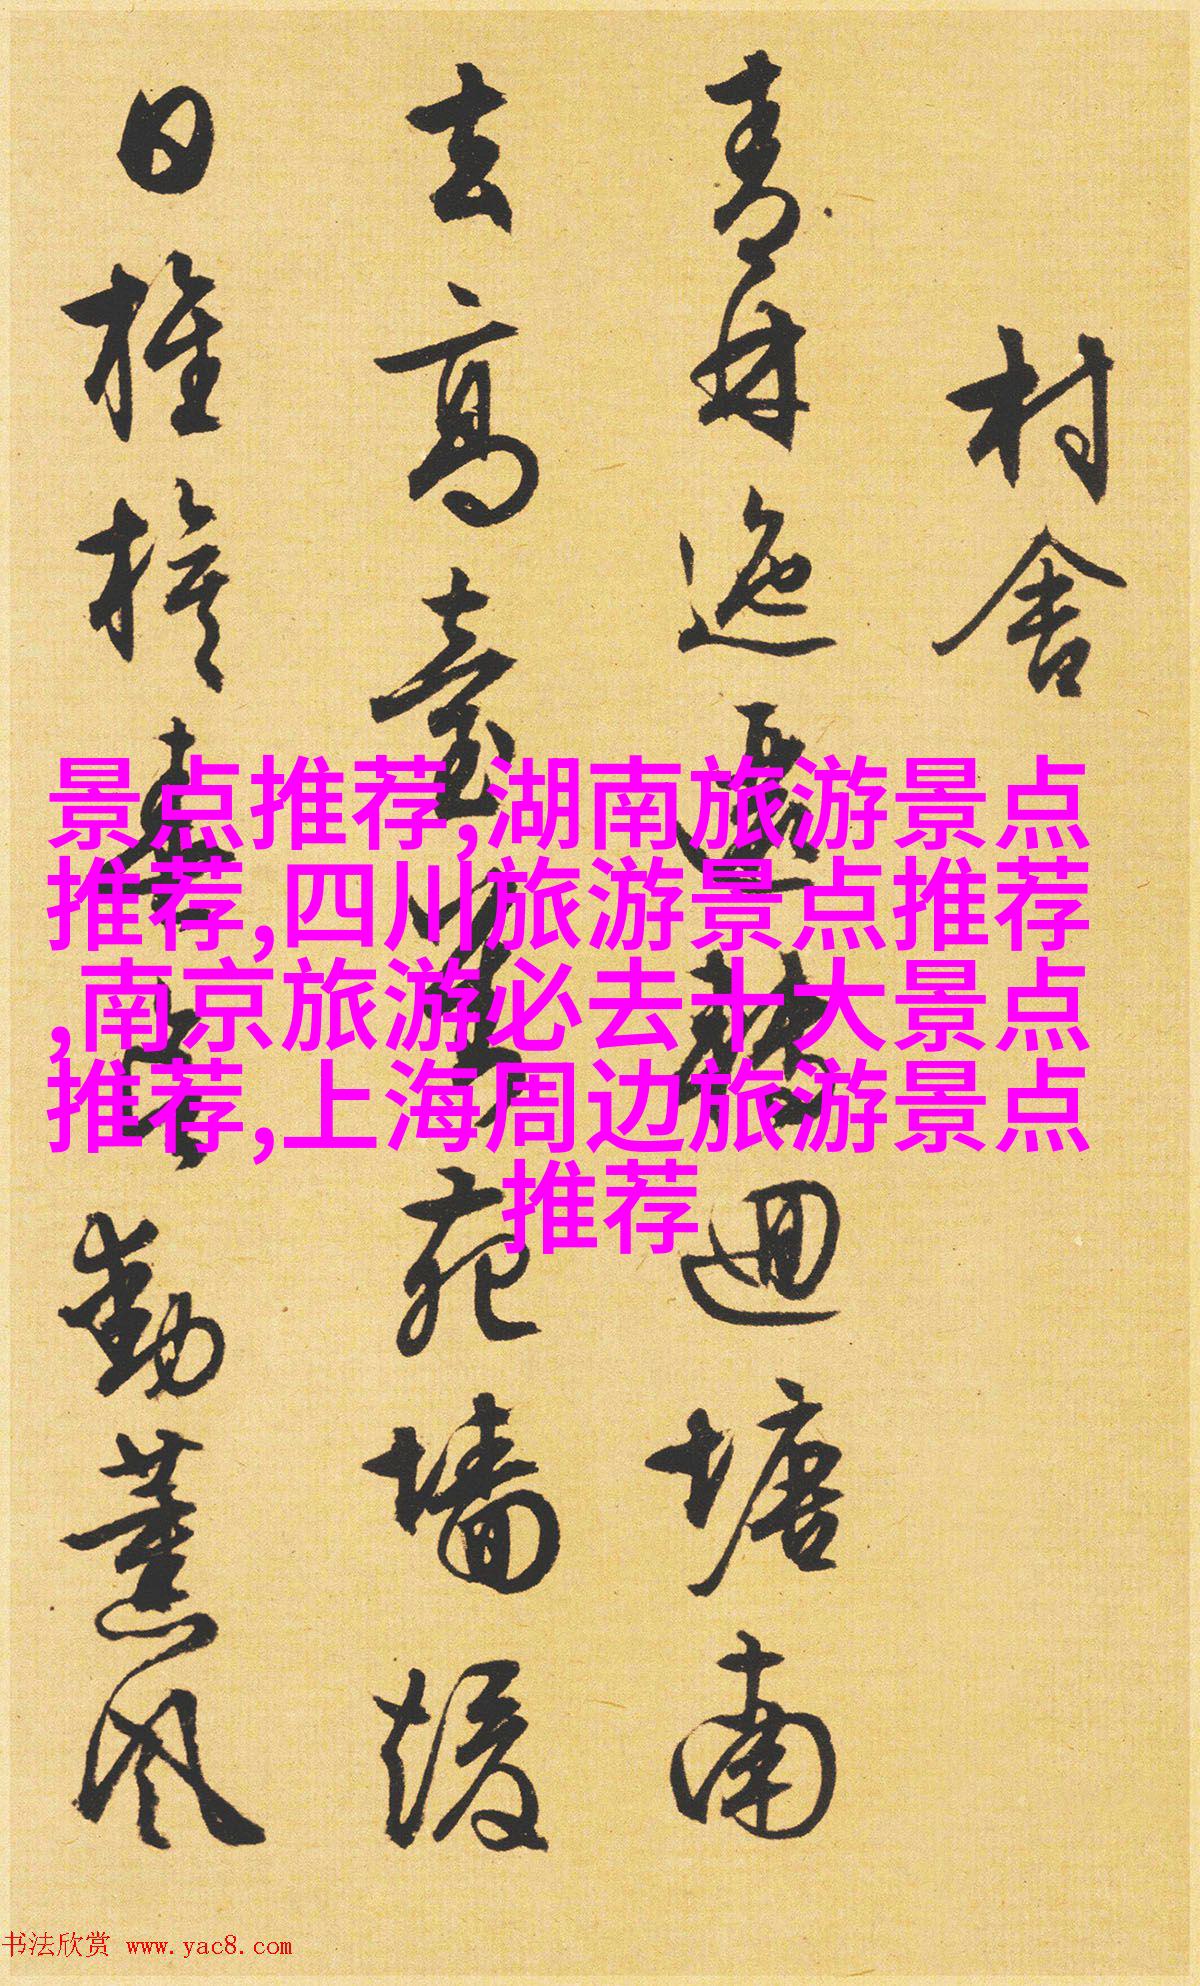 村舍
青林迤逦转回塘南
去高台对苑墙暖
日桩
动薰风
景点推荐,湖南旅游景点
推荐,四川旅游景点推荐
,南京旅游必去十大景点
推荐,上海周边旅游景点
推荐
书法欣赏 www.yac8.com